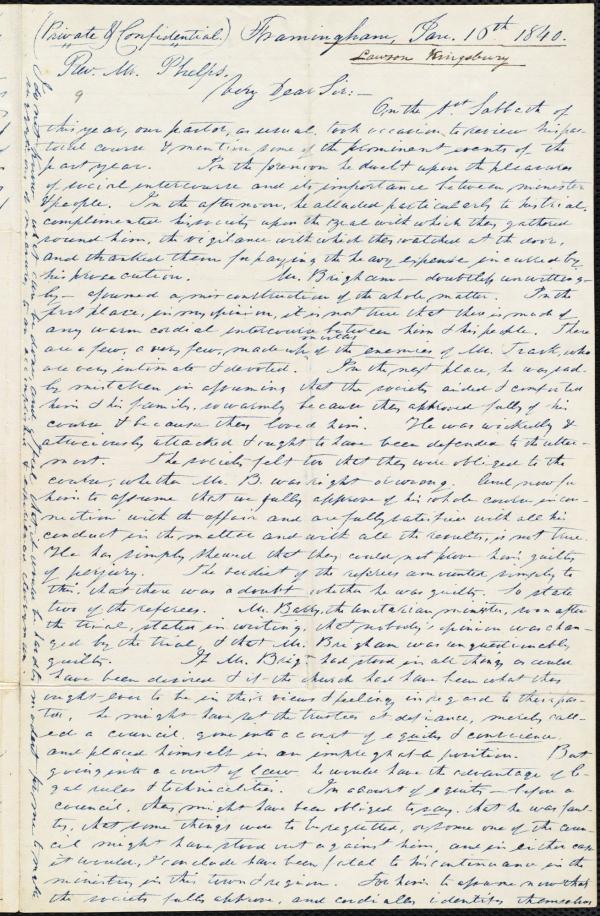 (Private & Confidential) Framingham, Jan. 16th 1840.
Lawson Kingsbury
Rev. Mr. Phelps.
9
Very Dear Sir:-
On the 1st Sabbath of
this year, our pastor, as usual, took occasion to review his pas-
toral course & mention some of the prominent events of the
past year. In the forenoon he dwelt upon the pleasures
of social intercourse and its importance between minister
& people. In the afternoon, he alluded particularly to his trial,
complimented his society upon the zeal with which they gathered
round him, the vigilance with which they watched at the door,
and thanked them for paying the heavy expense incurred by
his prosecution. Mr. Brigham - doubtless unwitting-
ly - assumed a misconstruction of the whole matter. In the
first place, in my opinion, it is not true that there is much of
any warm cordial intercourse between him & his people. There
are a few, a very few, made up of the enemies of Mr. Trask, who
are very intimate & devoted. In the next place, he was sad-
ly mistaken in assuming that the society aided & comforted
him & his family, so warmly because they approved fully of his
course & because they loved him. He was wickedly &
atrociously attacked & ought to have been defended to the utter-
most. The society felt too that they were obliged to the
course, whether Mr. B. was right or wrong. And now for
him to assume that we fully approve of his whole course in con-
nection with the affair and are fully satisfied with all his
conduct in the matter and with all the results, is not true.
He has simply showed that they could not prove him guilty
of perjury. The verdict of the referees amounted simply to
this, that there was a doubt whether he was guilty. So state
two of the referees. Mr. Bally, the Unitarian minister, soon after
the trial, stated in writing, that nobody's opinion was chan-
ged by the trial, & that Mr. Brigham was unquestionably
guilty. If Mr. Brig' had stood in all things as could
have been desired & if the church had have been what they
ought ever to be in their views & feelings in regard to their pas-
tor, he might have set the trustees at defiance, merely call-
ed a council, gone into a court of equity & conscience,
and placed himself in an impregnable position. But
going into a court of law, he would have the advantage of le-
gal rules & technicalities. In a court of equity - before a
council, they might have been obliged to say, that he was faul-
ty, that some things were to be regretted, or some one of the coun-
cil might have stood out against him, and in either case
it would, I conclude have been fatal to his continuance in the
ministry in this town & region. For him to assume now that
the society fully approve, and cordially identify themselves